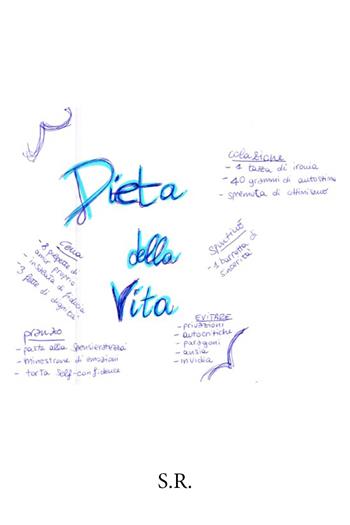 Dieta
della
Vita
colazione
- 1 tazza di ironia
- 40 grammi di autostima
- spremuta di ottimismo
Spuntino
- 1 barretta di
sincerità
Cena
- 2 polpette di
amor proprio
- insalata di fiducia
- 3 fette di dignità
pranzo
- pasta alla spensieratezza
- minestrone di emozioni
- torta self-confidence
EVITARE
- privazioni
- autocritiche
- paragoni
- ansia
- invidia
S.R.